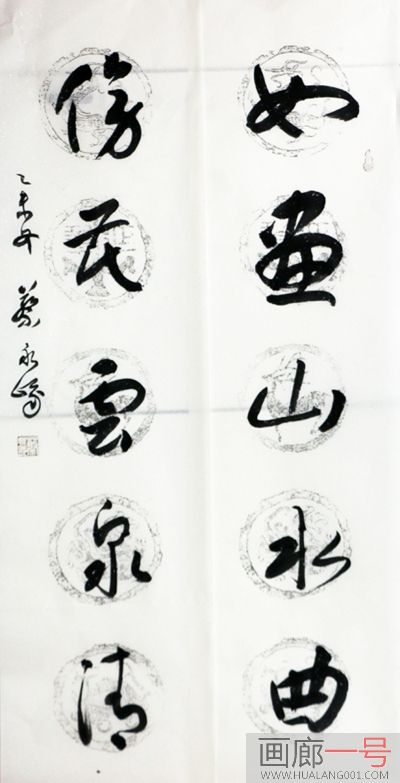 如畫山水曲
傍花雲泉清
乙未年 蔡永
画廊一号
WWW.HUALANG001.COM